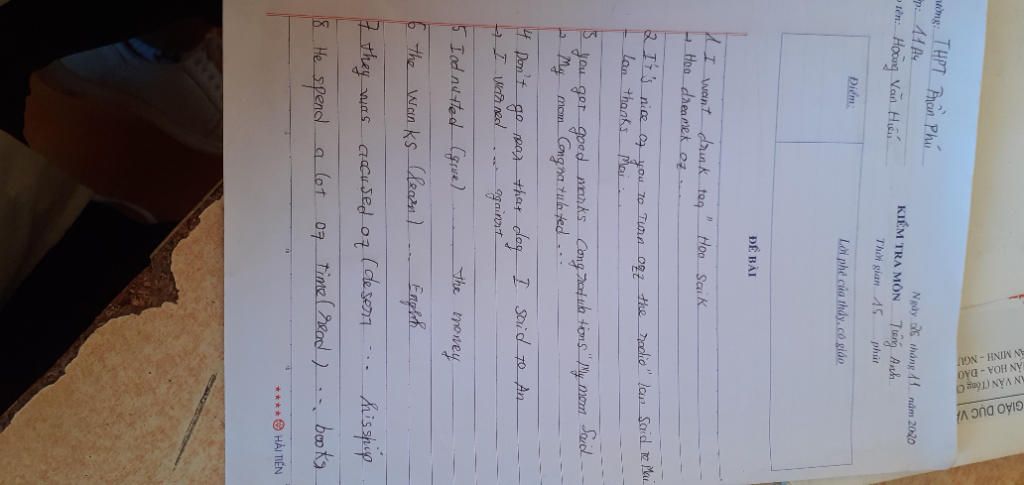 Trường: THPT Trần Phú
Lớp: 11A4
Họ tên: Hoàng Văn Hiếu
Ngày 25 tháng 11 năm 2020
KIỂM TRA MÔN Tiếng Anh
Thời gian 15 phút
Điểm:
Lời phê của thầy, cô giáo
ĐỀ BÀI
1 I want drunk tea" Hoa Saik
→ Hoa dreamek of ...
2 I's nice of you to turn off the radio" lan Said to Mai
- lan thanks Mai ...
3 you got good marks Congratulations" My mom Said
→ My mom Congratulated ...
4 Don't go near that dog I said to An
→ I warned ... against
5 I admitted (give) ... the money
6 the wanks (learn) ... English
7 they was accused of (desert ... hisship
8 He spend a lot of Time (read) ... books
HẢI TIẾN
GIÁO DỤC VÀ